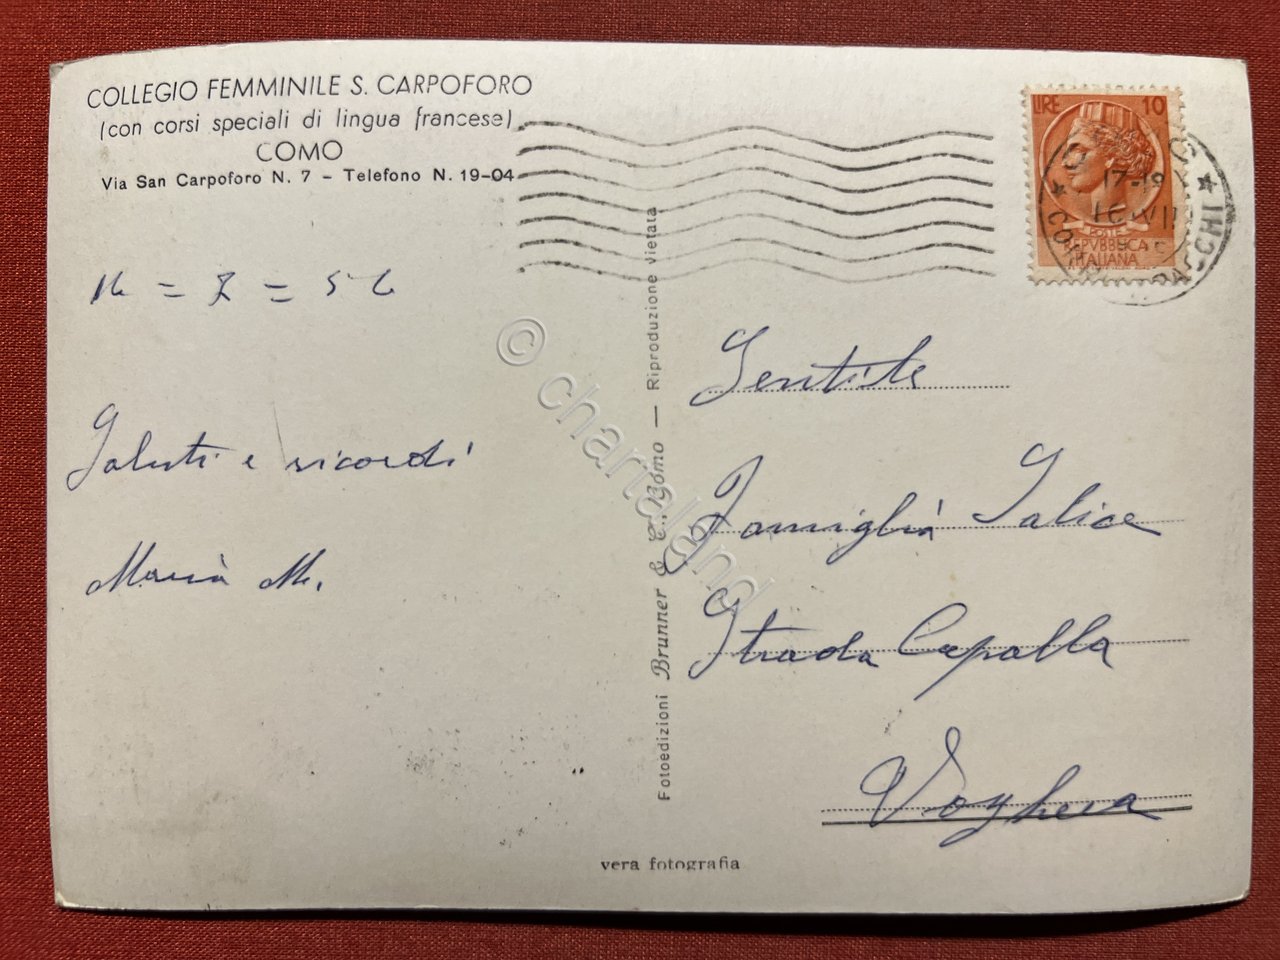 COLLEGIO FEMMINILE S. CARPOFORO
(con corsi speciali di lingua francese)
COMO
Via San Carpoforo N. 7 - Telefono N. 19-04
= 7 = 56
Saluti e ricordi
Maria M.
Fotoedizioni Brunner & C., Como — Riproduzione vietata
LIRE 10
POSTE
REPVBBLICA
ITALIANA
17-18
Gentile
Famiglia Salice
Strada Capalla
Voghera
vera fotografia
© chartaland